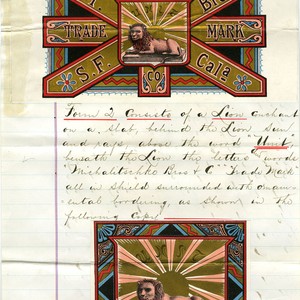 TRADE MARK
S.F. Co Cala
Form 2 Consists of a Lion couchant
on a slab, behind the Lion Sun
and rays above the word "Unet
beneath the Lion the letters & words
"Michalitschke Bros & Co" "Trade Mark"
all in shield surrounded with ornam-
ental bordering, as shown in the
following Copy